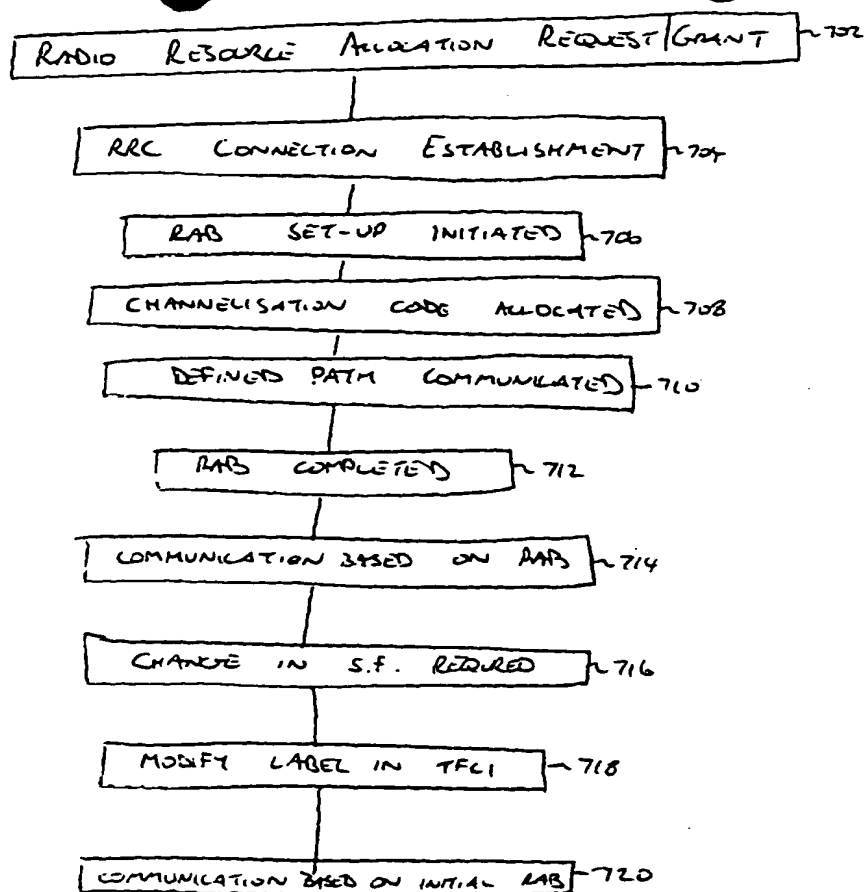 RADIO RESOURCE ALLOCATION REQUEST/GRANT 702
RRC CONNECTION ESTABLISHMENT 704
RAB SET-UP INITIATED 706
CHANNELISATION CODE ALLOCATED 708
DEFINED PATH COMMUNICATED 710
RAB COMPLETED 712
COMMUNICATION BASED ON RAB 714
CHANGE IN S.F. REQUIRED 716
MODIFY LABEL IN TFCI 718
COMMUNICATION BASED ON INITIAL RAB 720